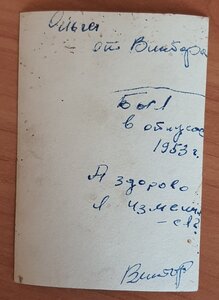 Ольги
от Виктора
Был
в отпуске
1953 г.
А здорово
я изменил
-ся?
Виктор